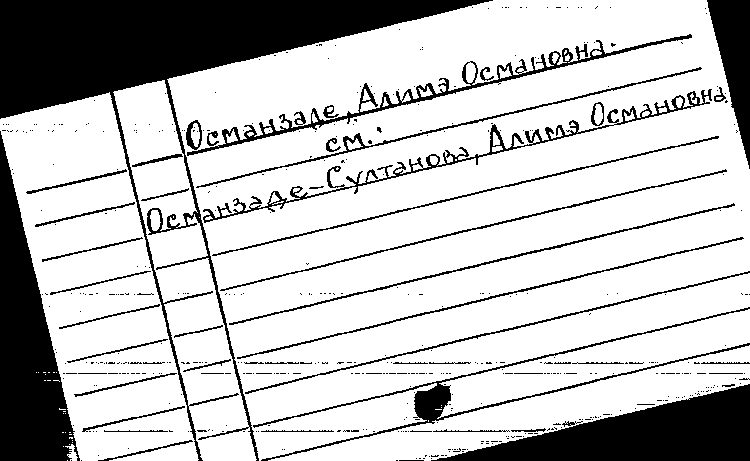 Османзаде, Алимэ Османовна.
см.:
Османзаде-Султанова, Алимэ Османовна